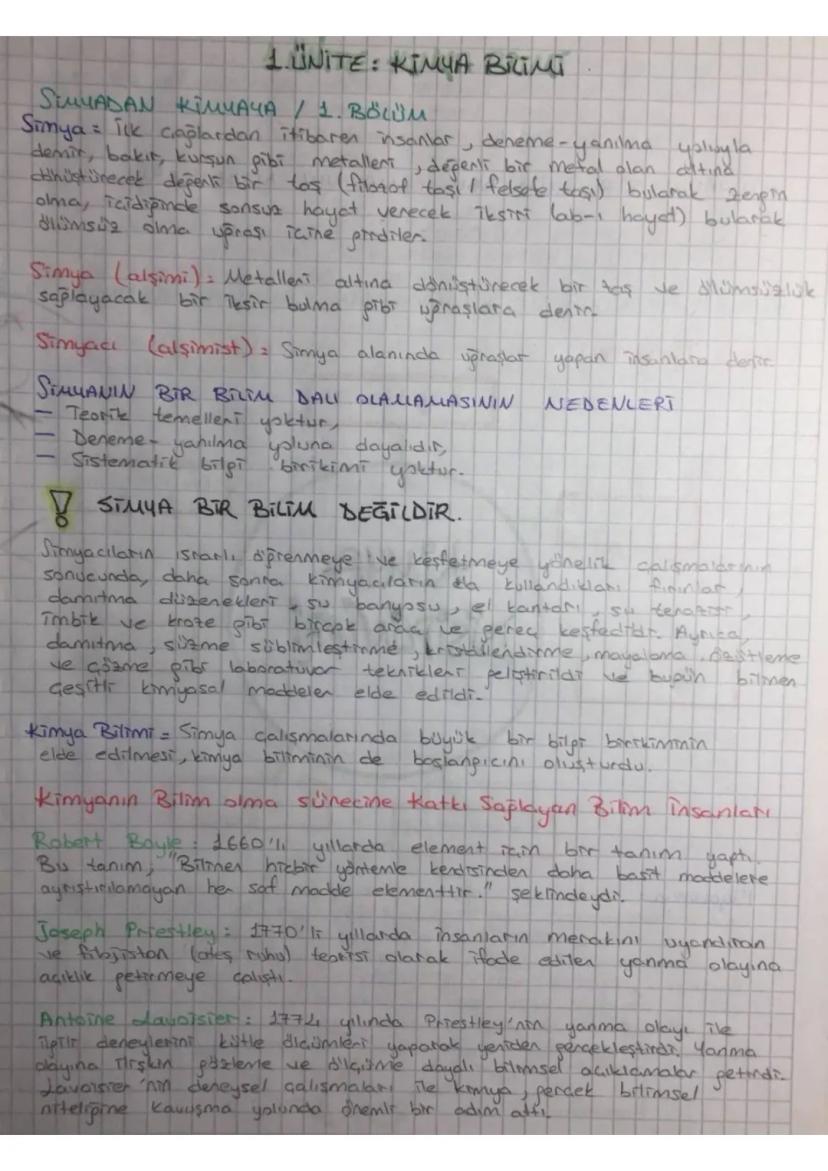 1.ÜNİTE: KİMYA BİLİMİ
SİMYADAN KİMYAYA / 1. BÖLÜM
Simya = İlk çağlardan itibaren insanlar, deneme-yanılma yoluyla
demir, bakır, kurşun gibi metalleri, değerli bir metal olan altına
dönüştürecek değerli bir taş (filozof taşı / felsefe taşı) bularak zengin
olma, içildiğinde sonsuz hayat verecek iksiri (ab-ı hayat) bularak
ölümsüz olma uğraşı içine girdiler.
Simya (alşimi) = Metalleri altına dönüştürecek bir taş ve ölümsüzlük
sağlayacak bir iksir bulma gibi uğraşlara denir.
Simyacı (alşimist) = Simya alanında uğraşlar yapan insanlara denir.
SİMYANIN BİR BİLİM DALI OLAMAMASININ NEDENLERİ
- Teorik temelleri yoktur,
- Deneme-yanılma yoluna dayalıdır,
- Sistematik bilgi birikimi yoktur.
! SİMYA BİR BİLİM DEĞİLDİR.
Simyacıların ısrarlı öğrenmeye ve keşfetmeye yönelik çalışmalarının
sonucunda, daha sonra kimyacıların da kullandıkları fırınlar,
damıtma düzenekleri, su banyosu, el kantarı, su terazisi,
imbik ve kroze gibi birçok araç ve gereç keşfedildi. Ayrıca,
damıtma, süzme süblimleştirme, kristallendirme, mayalama, özütleme
ve çözme gibi laboratuvar teknikleri geliştirildi ve bugün bilinen
çeşitli kimyasal maddeler elde edildi.
Kimya Bilimi = Simya çalışmalarında büyük bir bilgi birikiminin
elde edilmesi, kimya biliminin de başlangıcını oluşturdu.
Kimyanın Bilim olma sürecine Katkı Sağlayan Bilim İnsanları
Robert Boyle: 1660'lı yıllarda element için bir tanım yaptı.
Bu tanım; "Bilinen hiçbir yöntemle kendisinden daha basit maddelere
ayrıştırılamayan her saf madde elementtir." şeklindeydi.
Joseph Priestley: 1770'li yıllarda insanların merakını uyandıran
ve filojiston (ateş ruhu) teorisi olarak ifade edilen yanma olayına
açıklık getirmeye çalıştı.
Antoine Lavoisier: 1774 yılında Priestley'nin yanma olayı ile
ilgili deneylerini kütle ölçümleri yaparak yeniden gerçekleştirdi. Yanma
olayına ilişkin gözleme ve ölçüme dayalı bilimsel açıklamalar getirdi.
Lavoisier'nin deneysel çalışmaları ile kimya, gerçek bilimsel
niteliğine kavuşma yolunda önemli bir adım attı.